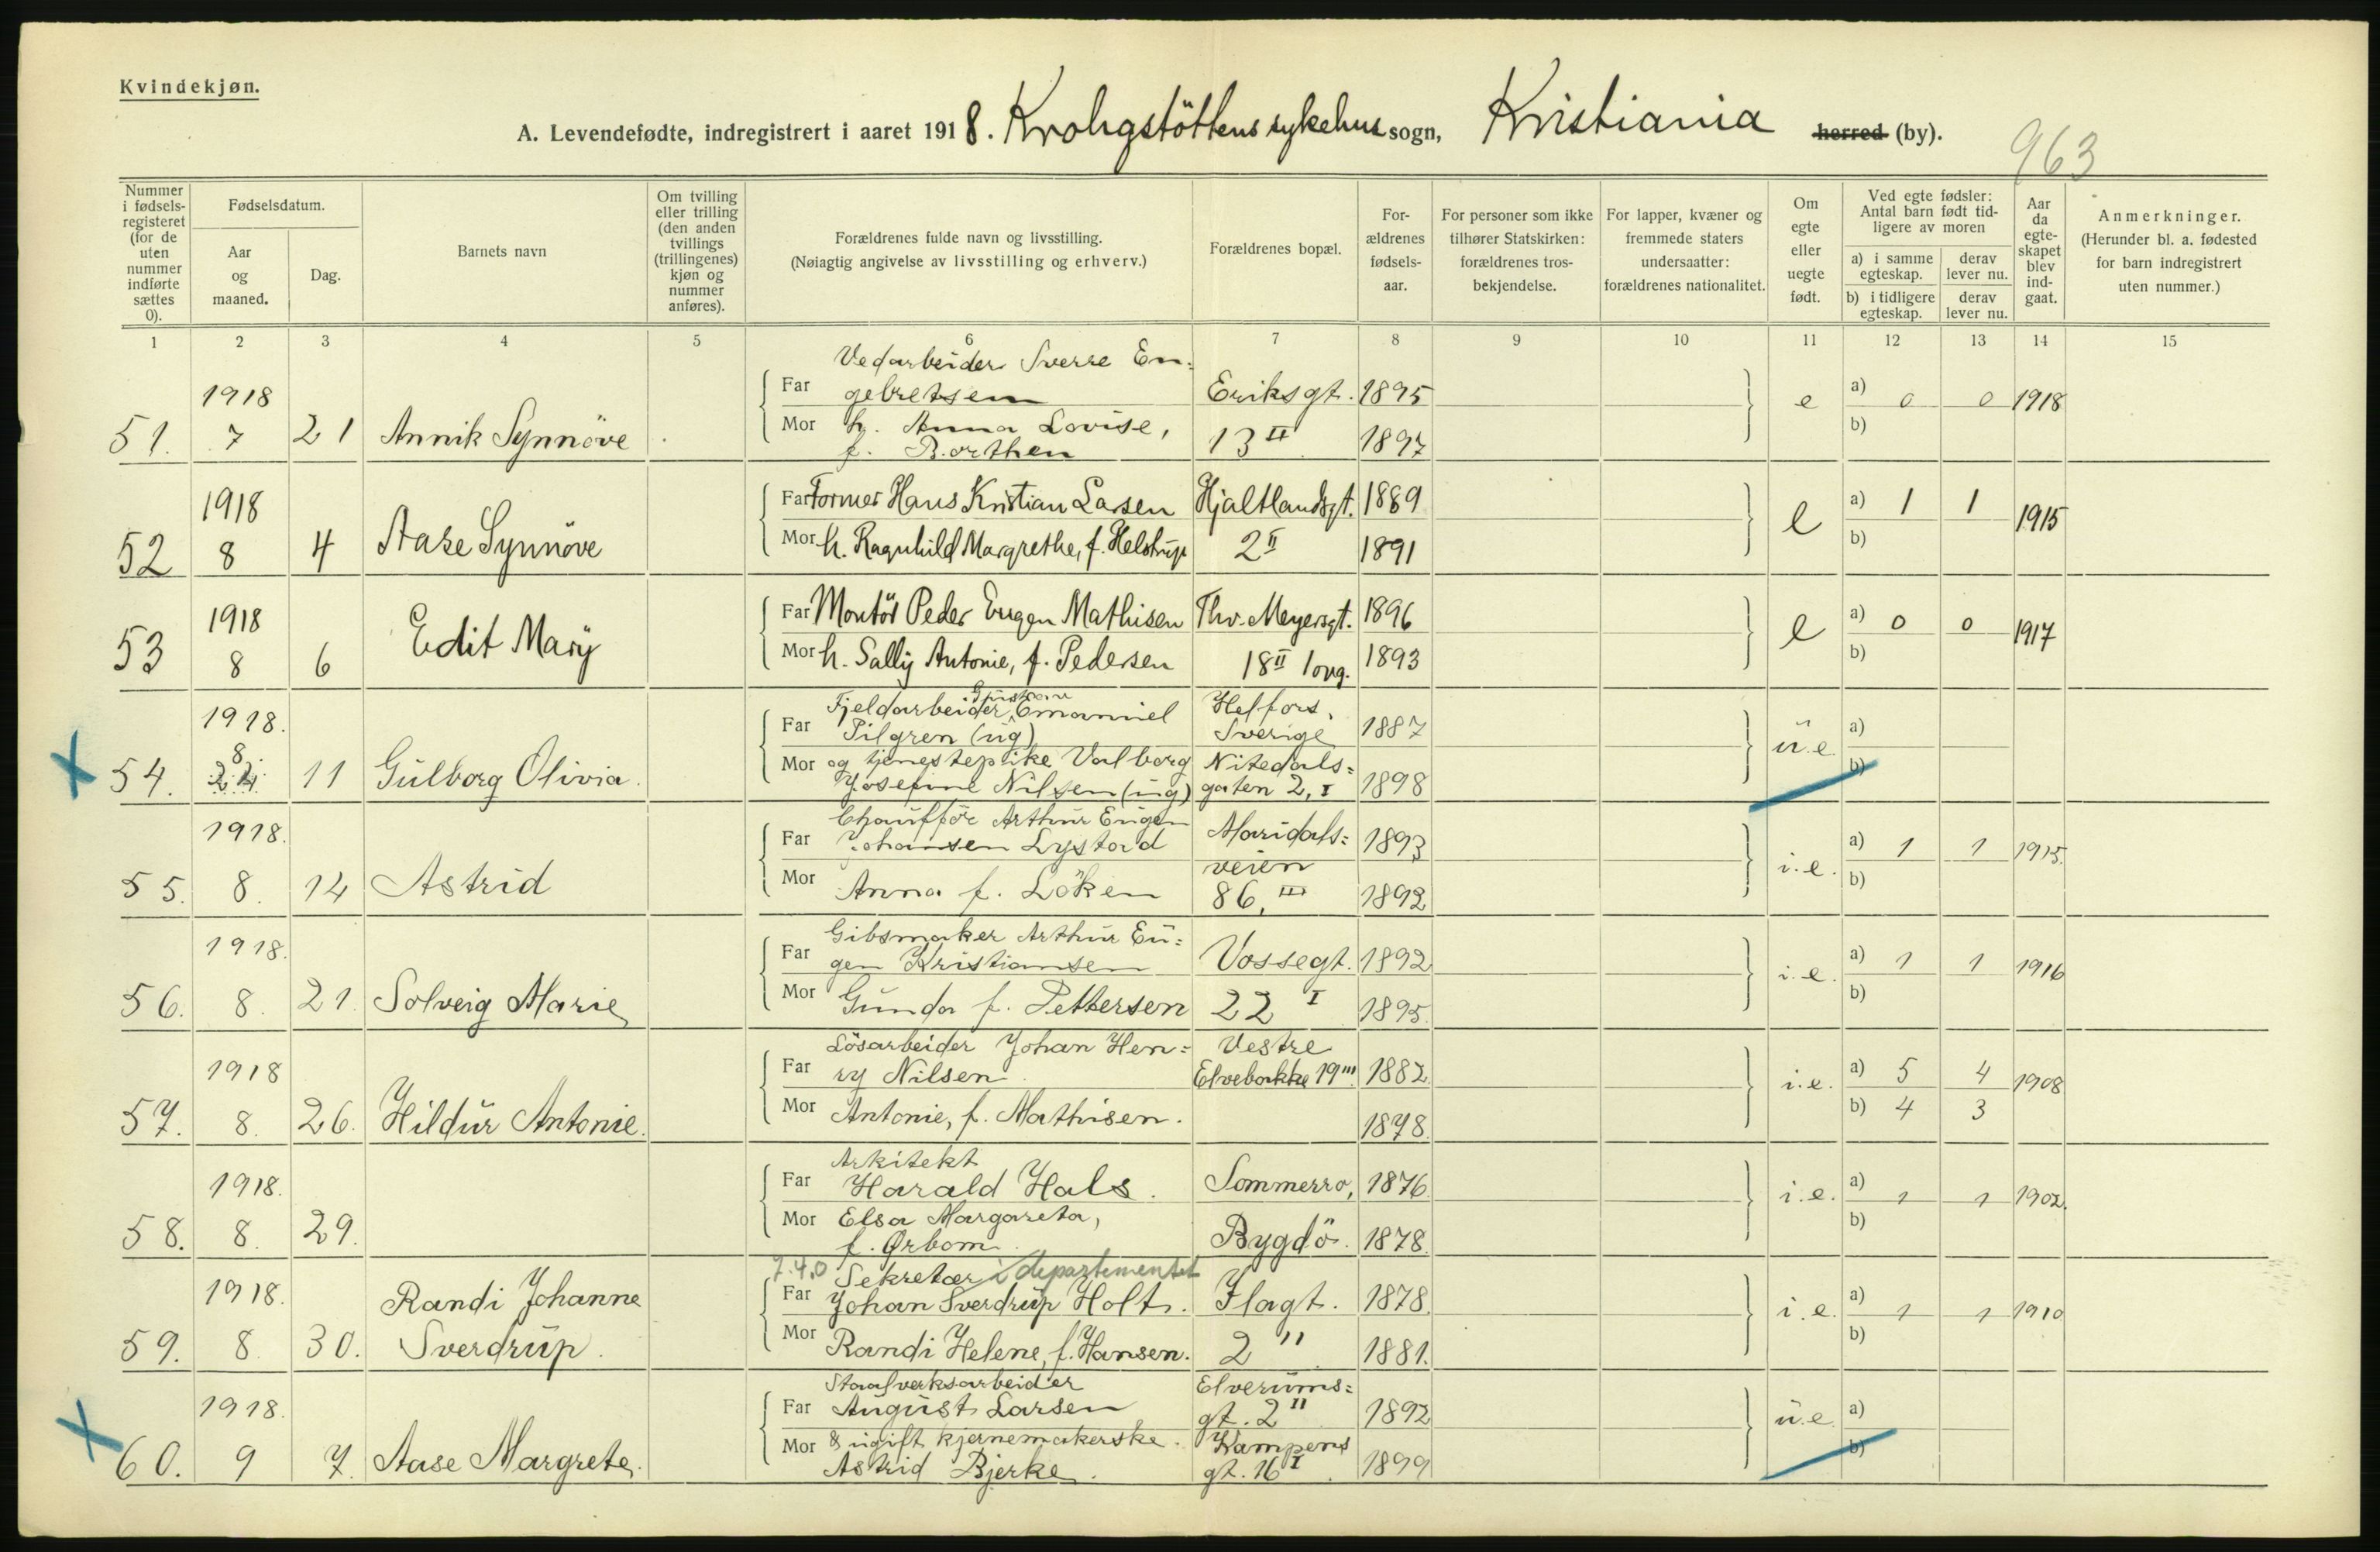 Kvindekjøn.
A. Levendefødte, indregistrert i aaret 1918. Krohgstöttens sykehus sogn, Kristiania herred (by).
963
Nummer i fødsels-registeret (for de uten nummer indførte sættes 0).
Fødselsdatum.
Aar og maaned.
Dag.
Barnets navn
Om tvilling eller trilling (den anden tvillings (trillingenes) kjøn og nummer anføres).
Forældrenes fulde navn og livsstilling.
(Nøiagtig angivelse av livsstilling og erhverv.)
Forældrenes bopæl.
For-ældrenes fødsels-aar.
For personer som ikke tilhører Statskirken: forældrenes tros-bekjendelse.
For lapper, kvæner og fremmede staters undersaatter: forældrenes nationalitet.
Om egte eller uegte født.
Ved egte fødsler: Antal barn født tid-ligere av moren
a) i samme egteskap.
derav lever nu.
b) i tidligere egteskap.
derav lever nu.
Aar da egte-skapet blev ind-gaat.
Anmerkninger.
(Herunder bl. a. fødested for barn indregistrert uten nummer.)
1 2 3 4 5 6 7 8 9 10 11 12 13 14 15
Vedarbeider Sverre En-
1918 Far gebretsen Eriksgt. 1895 e a) 0 0 1918
51. 7 21 Annik Synnöve Mor h. Anna Lovise, 13 II 1897 b)
f. Borthen
1918 Far Former Hans Kristian Larsen Hjaltlandsgt. 1889 e a) 1 1 1915
52 8 4 Aase Synnöve Mor h. Ragnhild Margrethe, f. Helstrup 2 II 1891 b)
1918 Far Montör Peder Eugen Mathisen Thv. Meyersgt. 1896 e a) 0 0 1917
53 8 6 Edit Mary Mor h. Sally Antonie, f. Pedersen 18 II opg. 1893 b)
Fjeldarbeider Gustav Emanuel Helfors,
1918. Far Pilgren (ug) Sverige 1887 u.e. a)
8
54. 11 Gulborg Olivia. Mor og tjenestepike Valborg Nitedals=
Josefine Nilsen (ug) gaten 2, I 1898 b)
Chaufför Arthur Eugen
1918. Far Johansen Lystad Maridals= 1893 i.e. a) 1 1 1915.
veien
55. 8. 14 Astrid Mor Anna f. Löken 86, III 1892 b)
Gibsmaker Arthur Eu=
1918. Far gen Kristiansen Vossegt. 1892 i.e. a) 1 1 1916
56. 8. 21. Solveig Marie Mor Gunda f. Pettersen 22 I 1895. b)
Lösarbeider Johan Hen= Vestre
1918 Far ry Nilsen Elvebakke 19 III 1882 i.e. a) 5 4 1908
57. 8. 26. Hildur Antonie. Mor Antonie, f. Mathisen. 1878. b) 4 3
Arkitekt
1918. Far Harald Hals. Sommerro, 1876 i.e. a) 1 1 1902.
58. 8. 29. Mor Elsa Margareta,
f. Ørbom Bygdö. 1878. b)
7.4.0 Sekretær i departementet
1918. Randi Johanne Far Johan Sverdrup Holt. Flagt. 1878. i.e. a) 1 1 1910
59. 8. 30. Sverdrup. Mor Randi Helene, f. Hansen. 2 II 1881. b)
Staalverksarbeider Elverums=
1918. Far August Larsen gt. 2 II 1892 u.e. a)
Mor & ugift kjernemakerske. Kampens
60. 9 7. Aase Margrete. Astrid Bjerke. gt. 16 I 1899 b)